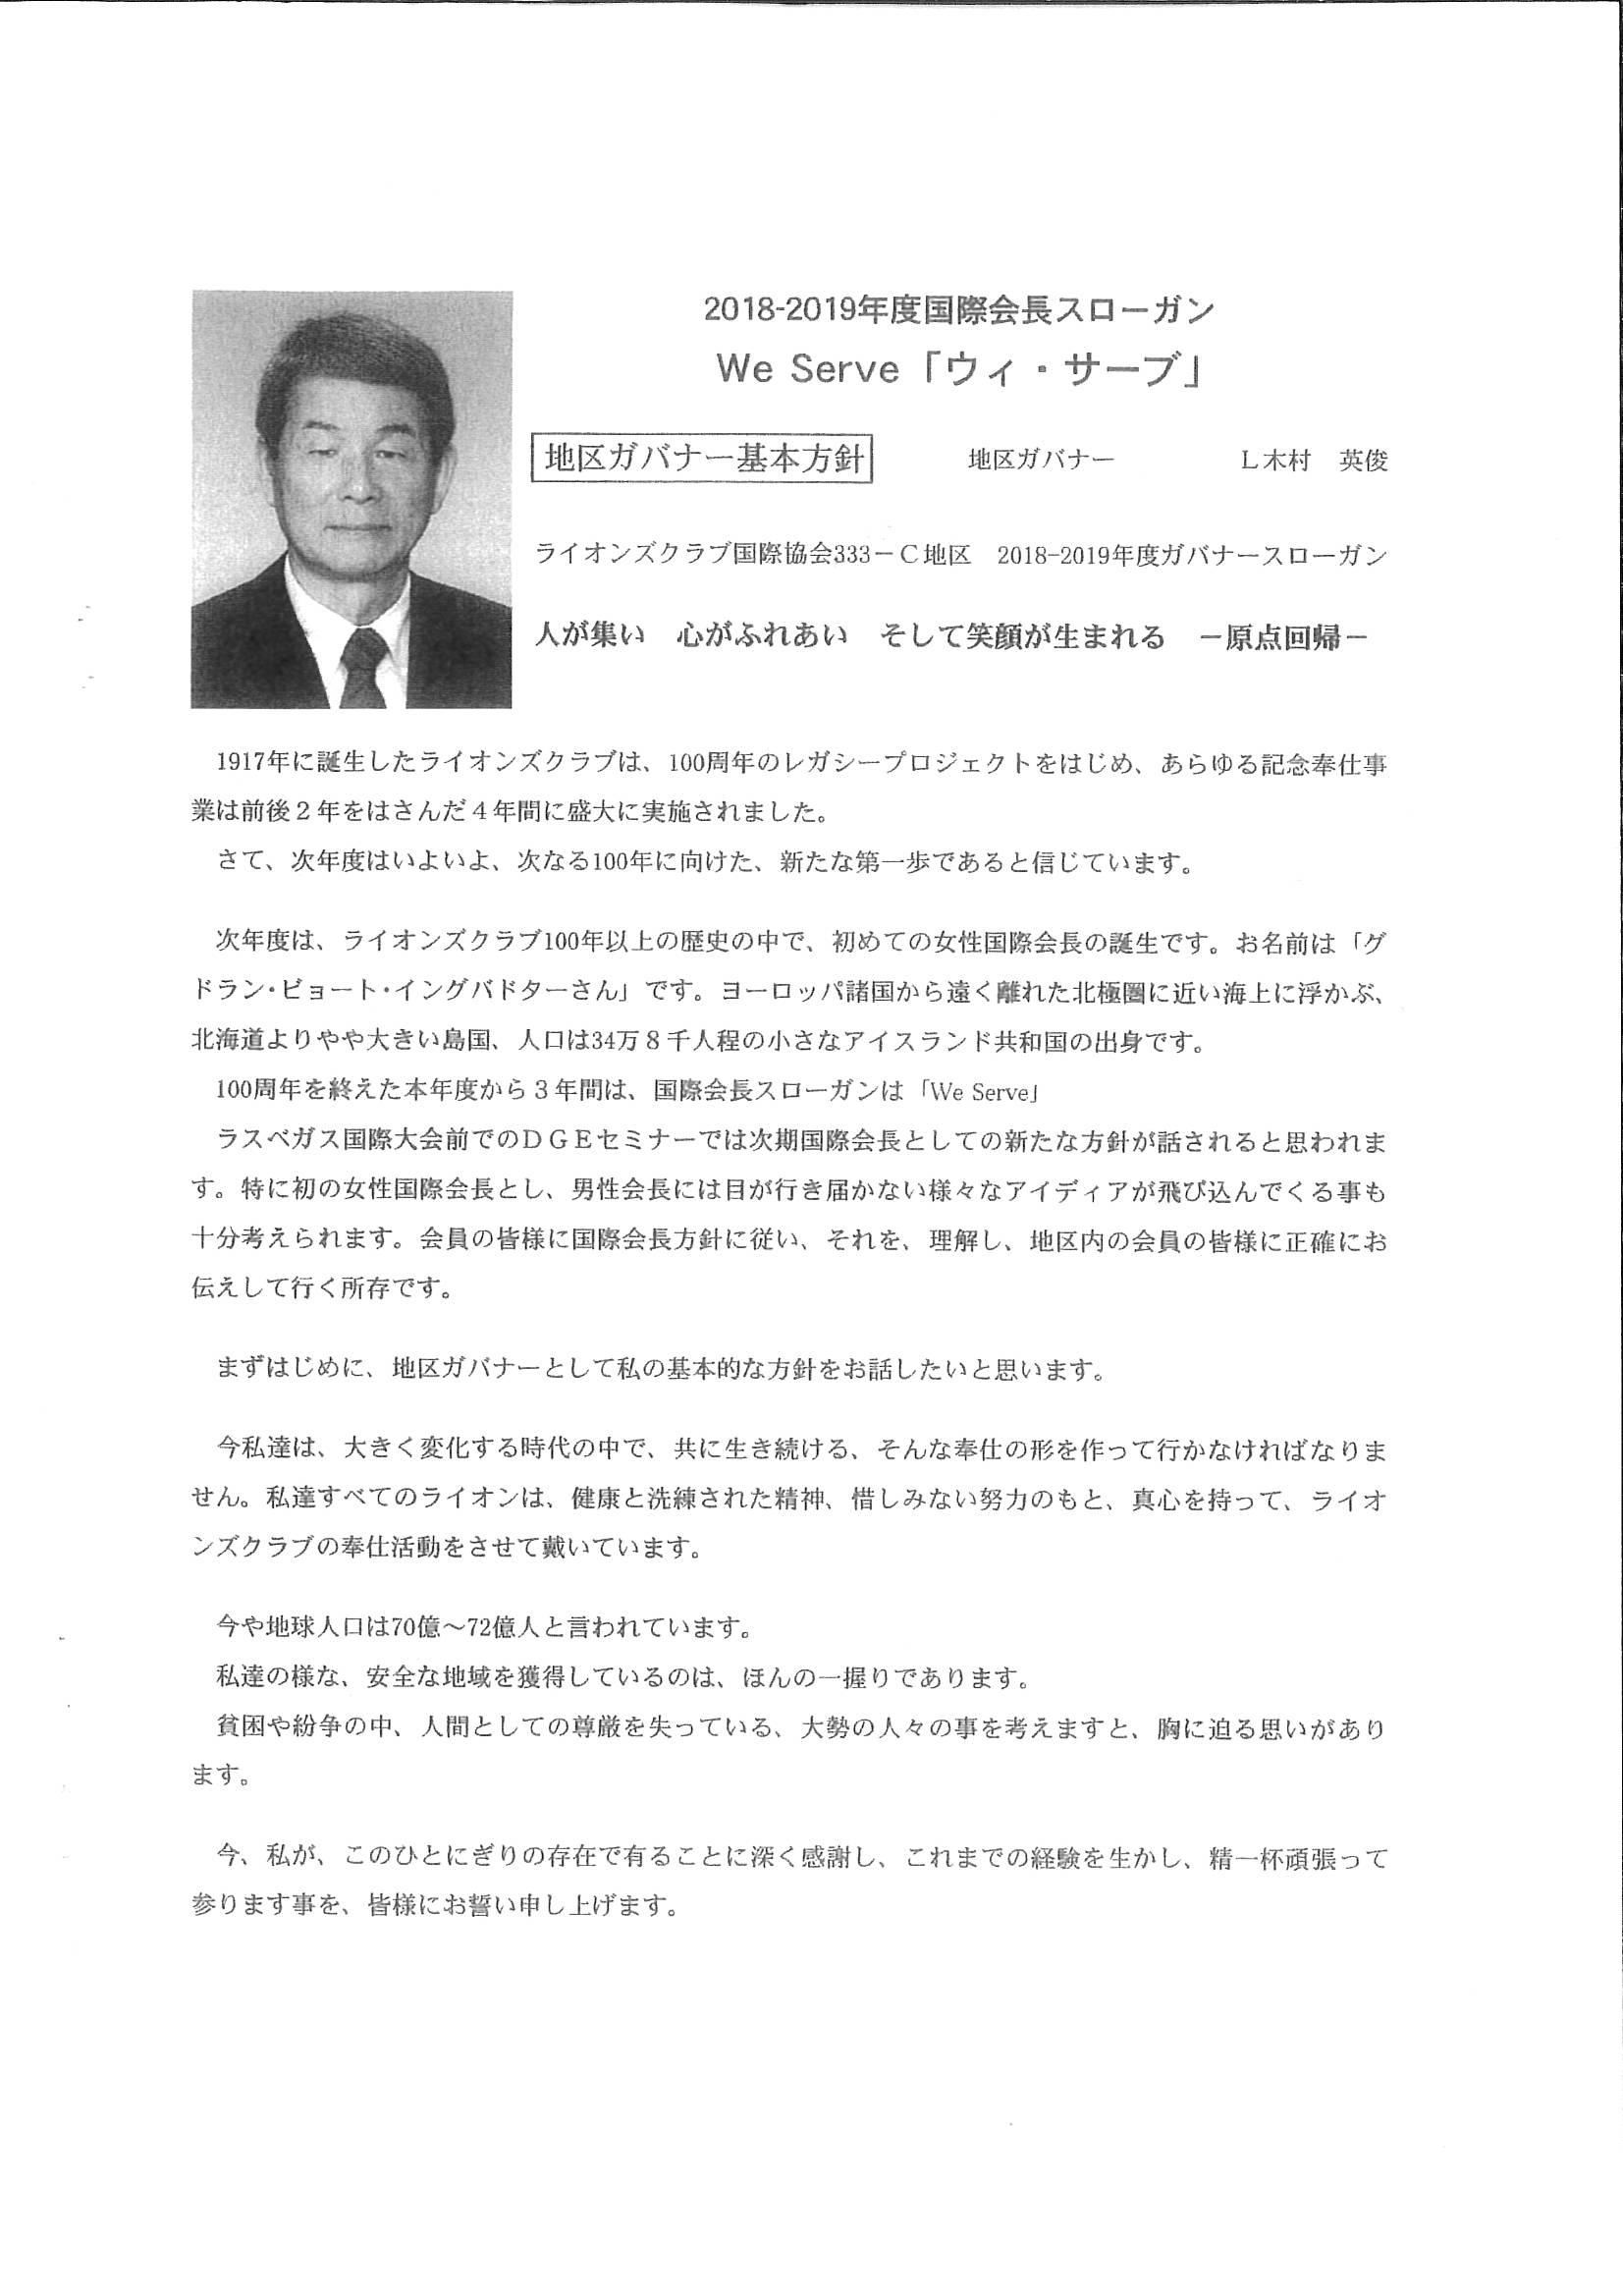 2018-2019年度国際会長スローガン
We Serve「ウィ・サーブ」
地区ガバナー基本方針　　地区ガバナー　　Ｌ木村　英俊
ライオンズクラブ国際協会333－Ｃ地区　2018-2019年度ガバナースローガン
人が集い　心がふれあい　そして笑顔が生まれる　－原点回帰－
1917年に誕生したライオンズクラブは、100周年のレガシープロジェクトをはじめ、あらゆる記念奉仕事
業は前後２年をはさんだ４年間に盛大に実施されました。
さて、次年度はいよいよ、次なる100年に向けた、新たな第一歩であると信じています。
次年度は、ライオンズクラブ100年以上の歴史の中で、初めての女性国際会長の誕生です。お名前は「グ
ドラン・ビョート・イングバドターさん」です。ヨーロッパ諸国から遠く離れた北極圏に近い海上に浮かぶ、
北海道よりやや大きい島国、人口は34万８千人程の小さなアイスランド共和国の出身です。
100周年を終えた本年度から３年間は、国際会長スローガンは「We Serve」
ラスベガス国際大会前でのＤＧＥセミナーでは次期国際会長としての新たな方針が話されると思われま
す。特に初の女性国際会長とし、男性会長には目が行き届かない様々なアイディアが飛び込んでくる事も
十分考えられます。会員の皆様に国際会長方針に従い、それを、理解し、地区内の会員の皆様に正確にお
伝えして行く所存です。
まずはじめに、地区ガバナーとして私の基本的な方針をお話したいと思います。
今私達は、大きく変化する時代の中で、共に生き続ける、そんな奉仕の形を作って行かなければなりま
せん。私達すべてのライオンは、健康と洗練された精神、惜しみない努力のもと、真心を持って、ライオ
ンズクラブの奉仕活動をさせて戴いています。
今や地球人口は70億～72億人と言われています。
私達の様な、安全な地域を獲得しているのは、ほんの一握りであります。
貧困や紛争の中、人間としての尊厳を失っている、大勢の人々の事を考えますと、胸に迫る思いがあり
ます。
今、私が、このひとにぎりの存在で有ることに深く感謝し、これまでの経験を生かし、精一杯頑張って
参ります事を、皆様にお誓い申し上げます。